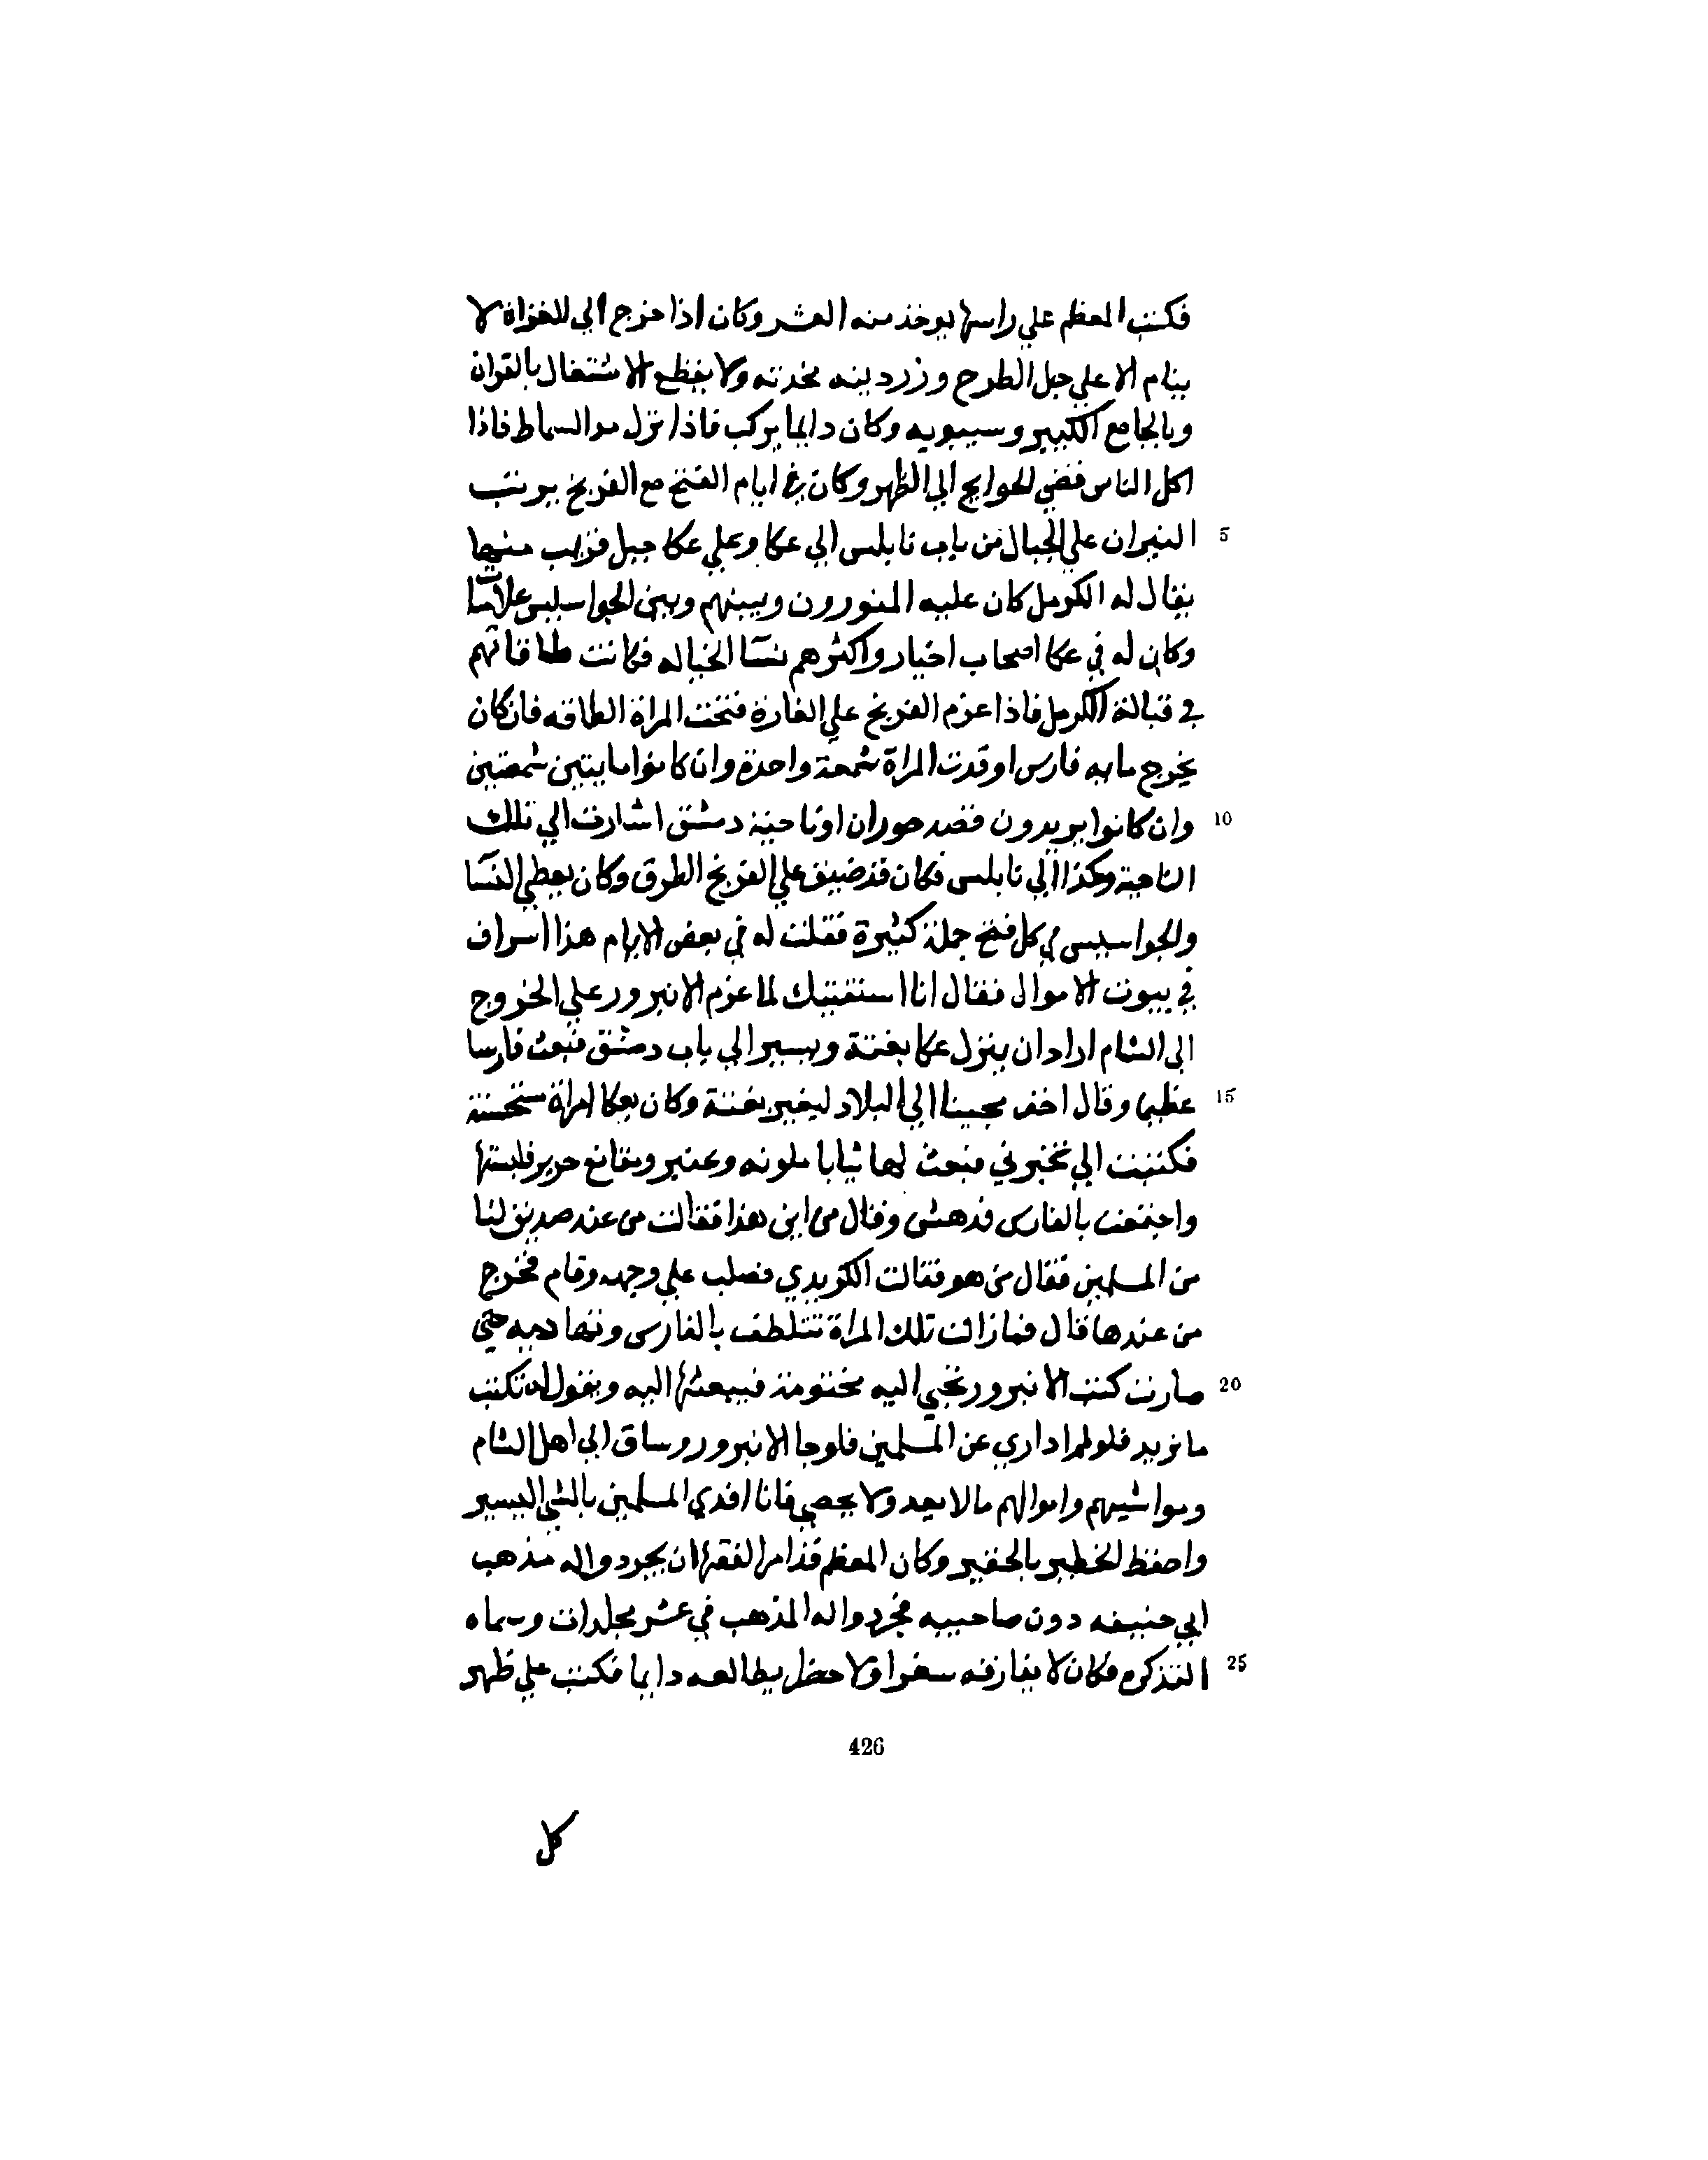 فكتب المعظم علي راسها يوخذ منه العشر وكان اذا خرج الي للغزاة لا
ينام الا علي جبل الطرح وزرديته مخدته ولا يقطع الاشتغال بالقران
وبالجامع الكبير وسيبويه وكان دايما يركب فاذا نزل مد السماط فاذا
اكل الناس قضي الحوايج الي الظهر وكان في ايام الفتح مع الفرنج يرتب
5 النيران علي الجبال من باب نابلس الي عكا وعلي عكا جبل قريب منها
يقال له الكرمل كان عليه المنورون وبينهم وبين الجواسيس علامات
وكان له في عكا اصحاب اخبار واكثرهم نسآ الخياله فكانت طاقاتهم
في قبالة الكرمل فاذا عزم الفرنج علي الغارة فتحت المراة الطاقه فان كان
يخرج مايه فارس اوقدت المراة شمعة واحدة وان كانوا مايتين شمعتين
10 وان كانوا يريدون قصد حوران او ناحية دمشق اشارت الي تلك
الناحية وكذا الي نابلس فكان قد ضيق علي الفرنج الطرق وكان يعطي النسآ
والجواسيس في كل فتح جملة كثيرة فقلت له في بعض الايام هذا اسراف
في بيوت الاموال فقال انا استفتيك لما عزم الانبرور علي الخروج
الي الشام اراد ان ينزل عكا بغتة ويسير الي باب دمشق فبعث فارسا
15 عظيما وقال اخف مجينا الي البلاد ليغير بغتة وكان بعكا امراة مستحسنة
فكتبت الي تخبرني فبعث لها ثيابا ملونه وعنبر ومقانع حرير فلبستها
واجتمعت بالفارس فدهش وقال من اين هذا فقالت من عند صديق لنا
من المسلمين فقال من هو فقالت الكريدي فصلب علي وجهه وقام فخرج
من عندها قال فما زالت تلك المراة تتلطف بالفارس وتهاديه حتي
20 صارت كتب الانبرور تجي اليه مختومة فيبعثها اليه ويقول له تكتب
ما نريد فلو لم اداري عن المسلمين فلو جا الانبرور وساق الي اهل الشام
ومواشيهم واموالهم مالا يعد ولا يحصي فانا افدي المسلمين بالشي اليسير
واحفظ الخطير بالحقير وكان المعظم قد امر الفقها ان يجردوا له مذهب
ابي حنيفه دون صاحبيه فجردوا له المذهب في عشر مجلدات وسماه
25 التذكره فكان لا يفارقه سفرا ولا حضر يطالعه دايما فكتب علي ظهر
426
كل